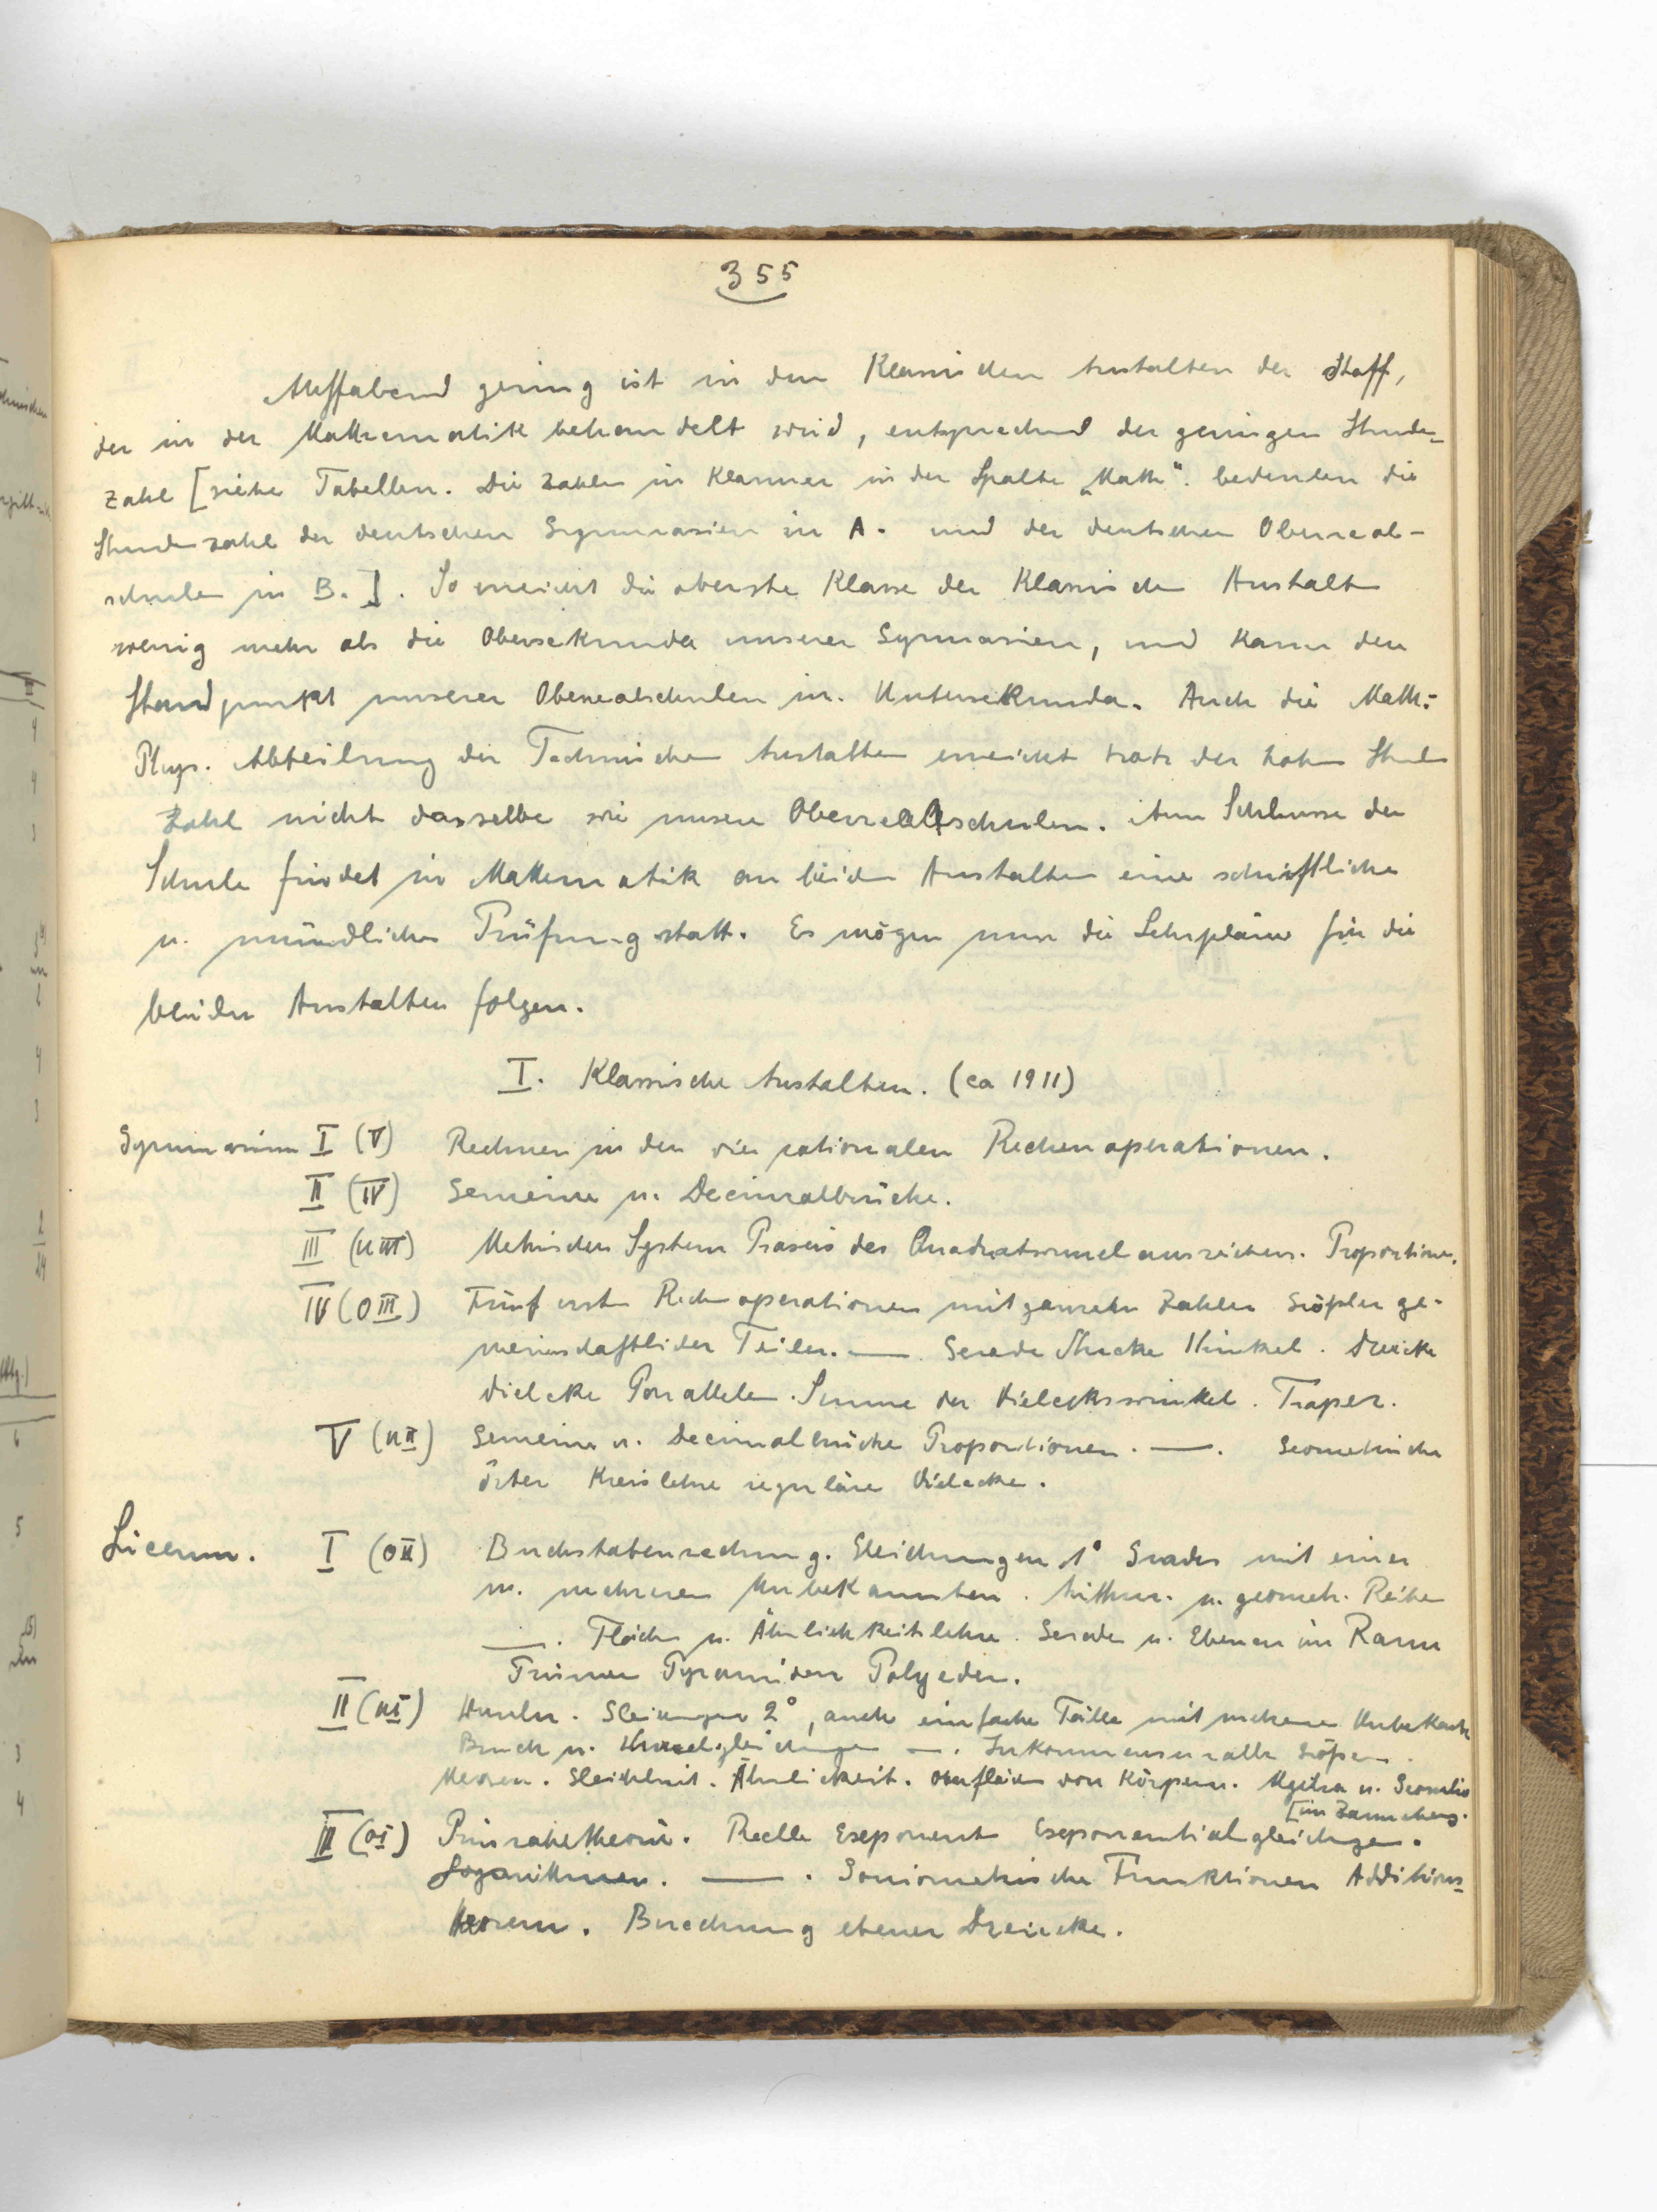 355
Auffallend gering ist in den Klassischen Anstalten der Stoff,
der in der Mathematik behandelt wird, entsprechend der geringen Stunden-
zahl [siehe Tabellen. Die Zahlen in Klammer in der Spalte „Math". bedeuten die
Stundenzahl der deutschen Gymnasien in A. und der deutschen Oberreal-
schulen in B.]. So erreicht die oberste Klasse der Klassischen Anstalten
wenig mehr als die Obersekunda unserer Gymnasien, und kaum den
Standpunkt unserer Oberrealschulen in Untersekunda. Auch die Math.-
Phys. Abteilung der Technischen Anstalten erreicht trotz der hohen Stunden
Zahl nicht dasselbe wie unsere Oberrealschulen. Am Schlusse der
Schule findet in Mathematik an beiden Anstalten eine schriftliche
u. mündliche Prüfung statt. Es mögen nun die Lehrpläne für die
beiden Anstalten folgen.
I. Klassische Anstalten. (ca 1911)
Gymnasium I (V) Rechnen in den vier rationalen Rechenoperationen.
II (IV) Gemeine u. Decimalbrüche.
III (UIII) Metrisches System Praxis des Quadratwurzelausziehens. Proportionen.
IV (OIII) Fünf erste Rechenoperationen mit ganzen Zahlen Größter ge-
meinschaftlicher Teiler. —. Gerade Strecke Winkel. Dreiecke
Vielecke Parallelen. Summe der Vieleckswinkel. Trapez.
V (UII) Gemeine u. Decimalbrüche Proportionen. —. Geometrische
Örter Kreislehre reguläre Vielecke.
Liceum. I (OII) Buchstabenrechnung. Gleichungen 1° Grades mit einer
u. mehreren Unbekannten. Arithm. u. geometr. Reihen
—. Flächen u. Ähnlichkeitslehre. Gerade u. Ebenen im Raum
Prismen Pyramiden Polyeder.
II (UI) Wurzeln. Gleichungen 2°, auch einfache Fälle mit mehreren Unbekannten
Bruch u. Wurzelgleichungen —. Inkommensurable Größen.
Messen. Gleichheit. Ähnlichkeit. Oberflächen von Körpern. Algebra u. Geometrie
[im Zusammenhang.
III (OI) Primzahltheorie. Reelle Exponenten Exponentialgleichungen.
Logarithmen. —. Goniometrische Funktionen Additions-
theorem. Berechnung ebener Dreiecke.